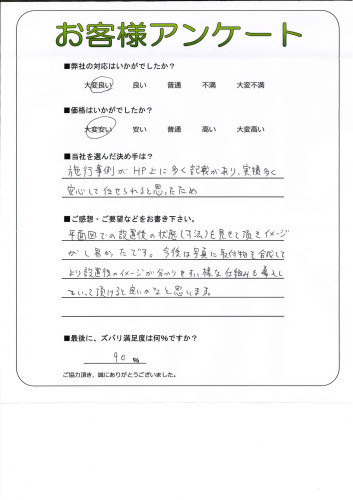 お客様アンケート
■弊社の対応はいかがでしたか？
大変良い 良い 普通 不満 大変不満
■価格はいかがでしたか？
大変安い 安い 普通 高い 大変高い
■当社を選んだ決め手は？
施行事例がHP上に多く記載があり、実積多く
安心して任せられると思ったため
■ご感想・ご要望などをお書き下さい。
平面図での設置後の状態(寸法)を見せて頂きイメージ
がし易かったです。今後は写真に取付物を合成して
より設置後のイメージが分かりやすい様な仕組みを導入し
ていって頂けると良いかなと思います。
■最後に、ズバリ満足度は何%ですか？
90 %
ご協力頂き、誠にありがとうございました。